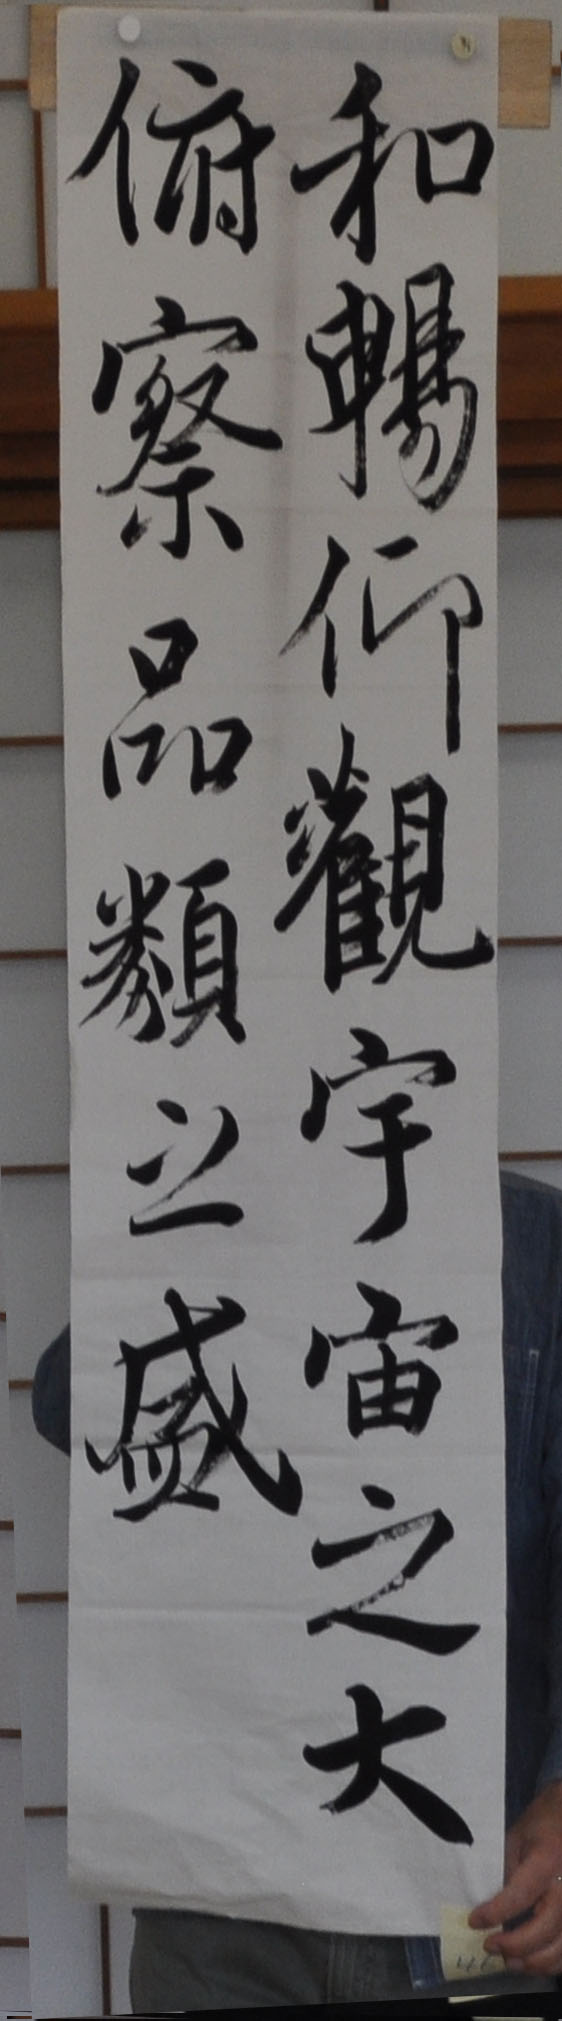 和暢仰觀宇宙之大
俯察品類之盛